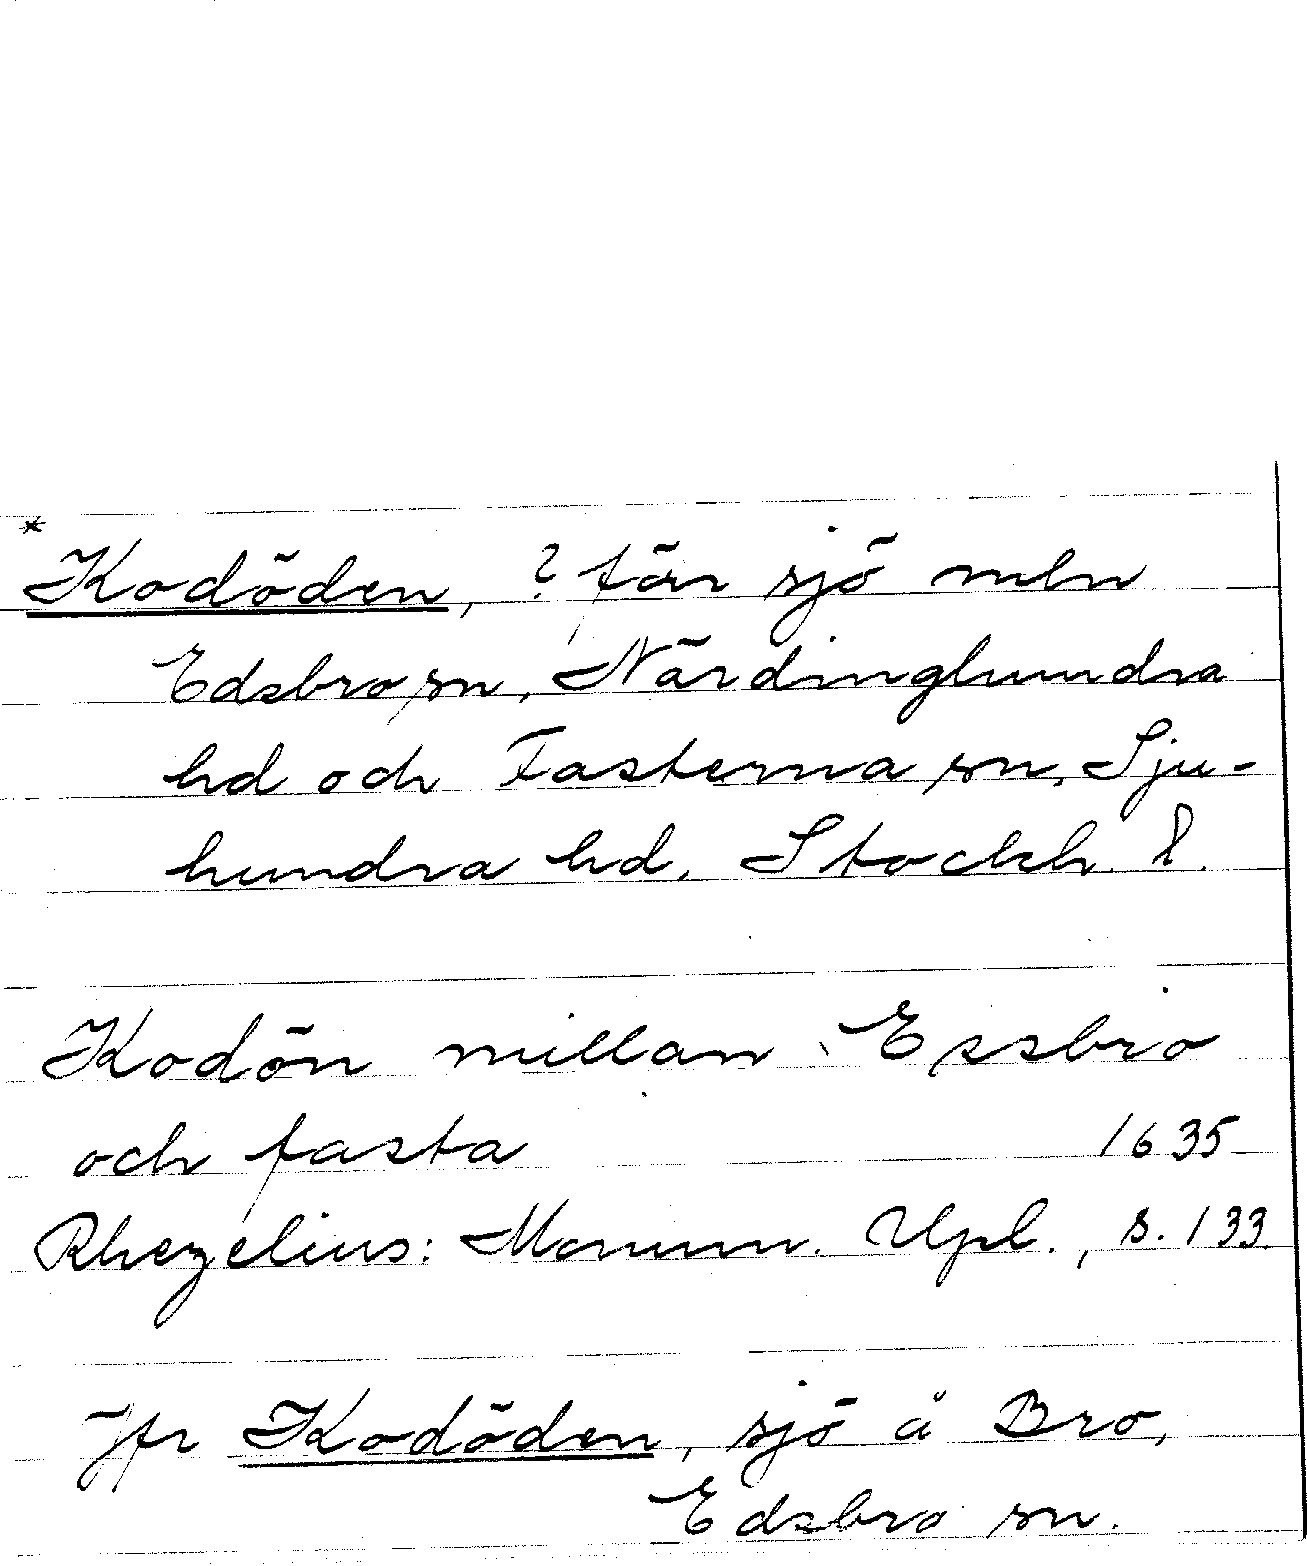 *
Kodöden, ? för sjö mln
Edsbro sn, Närdinghundra
hd och Fasterna sn, Sju-
hundra hd, Stockh. l.
Kodön millan Essbro
och fasta 1635
Rhezelius: Monum. Upl., s. 133
Jfr Kodöden, sjö å Bro,
Edsbro sn.